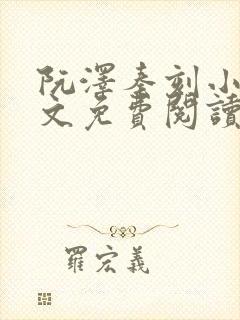 阮澤秦刻小
文免費閱讀
羅宏義